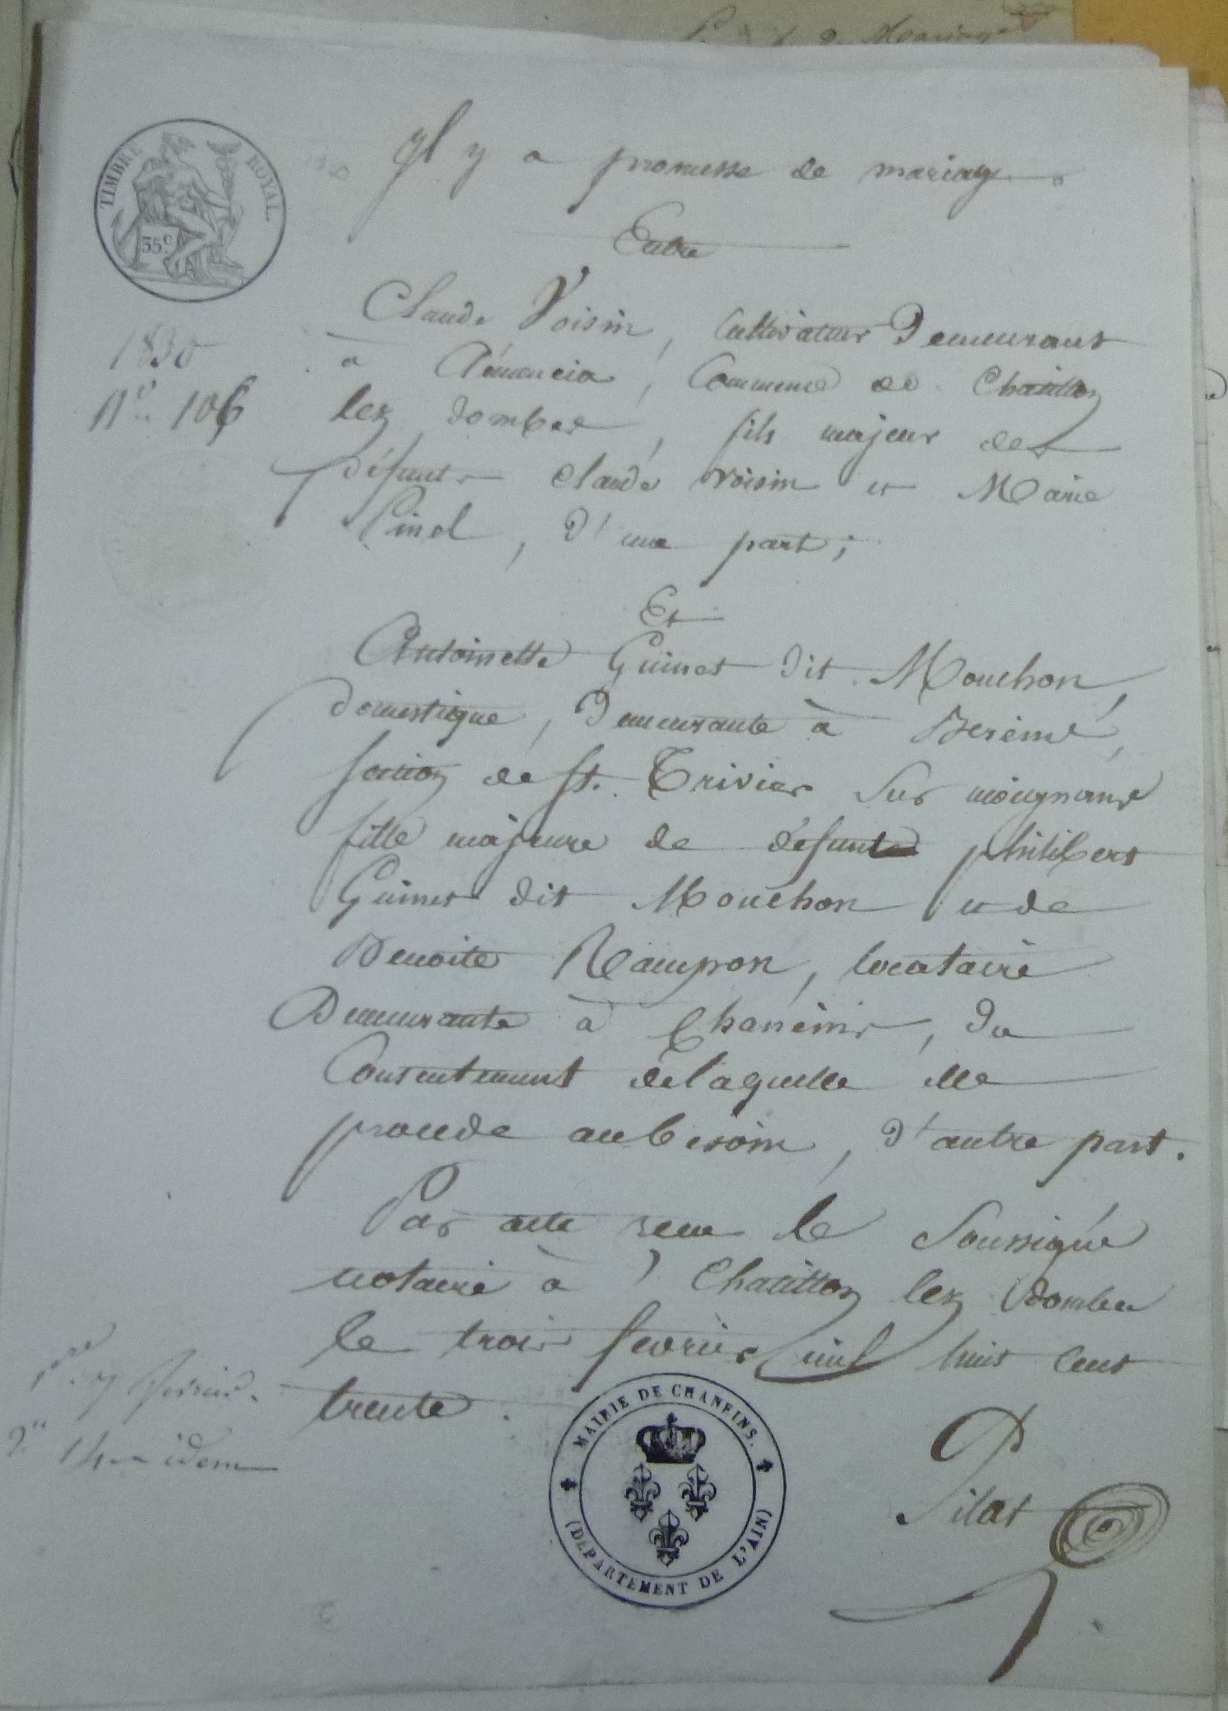 TIMBRE ROYAL.
35c
Il y a promesse de mariage
Entre
Claude Voisin, Cultivateur Demeurant
à Clémencia, Commune de Chatillon
lez dombes, fils majeur des
défunts Claude Voisin et Marie
Pinel, d'une part;
1830
N° 106
Et
Antoinette Guinet dit Mouchon,
domestique, Demeurante à
section de St. Trivier sur moignans
fille majeure de défunt philibert
Guinet dit Mouchon et de
Benoite Rampon, locataire
Demeurante à Chaneins, du
Consentement delaquelle elle
procede aubesoin, d'autre part.
Par acte recu le Soussigné
notaire à Chatillon lez Dombes
le trois fevrier mil huit cent
trente.
1ere 7 fevrier.
2e 14 idem
MAIRIE DE CHANEINS.
(DEPARTEMENT DE L'AIN)
Pilat